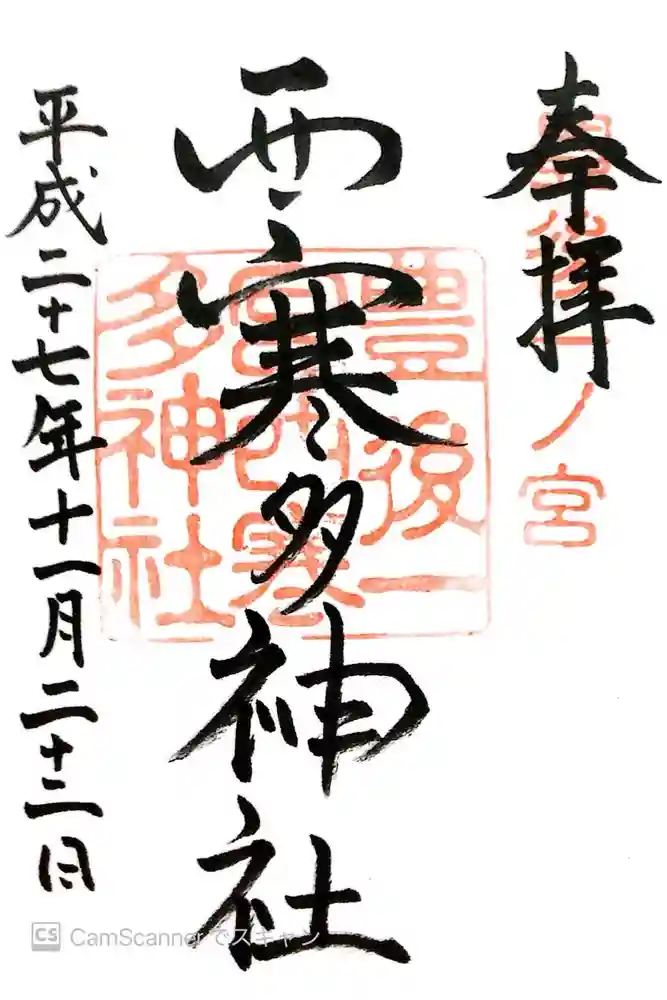 奉拝
豊後一ノ宮
西寒多神社
豊後一
宮西寒
多神社
平成二十七年十一月二十三日
CS CamScannerでスキャン